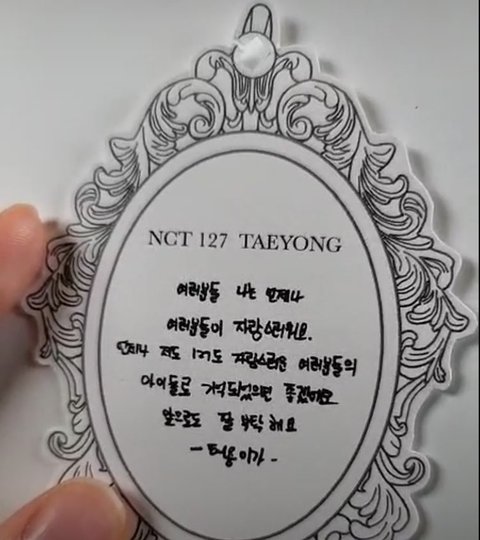 NCT 127 TAEYONG
여러분들 나는 언제나
여러분들이 자랑스러워요.
언제나 저도 127도 자랑스러운 여러분들의
아이돌로 기억되었으면 좋겠네요
앞으로도 잘 부탁해요
- 태용이가 -